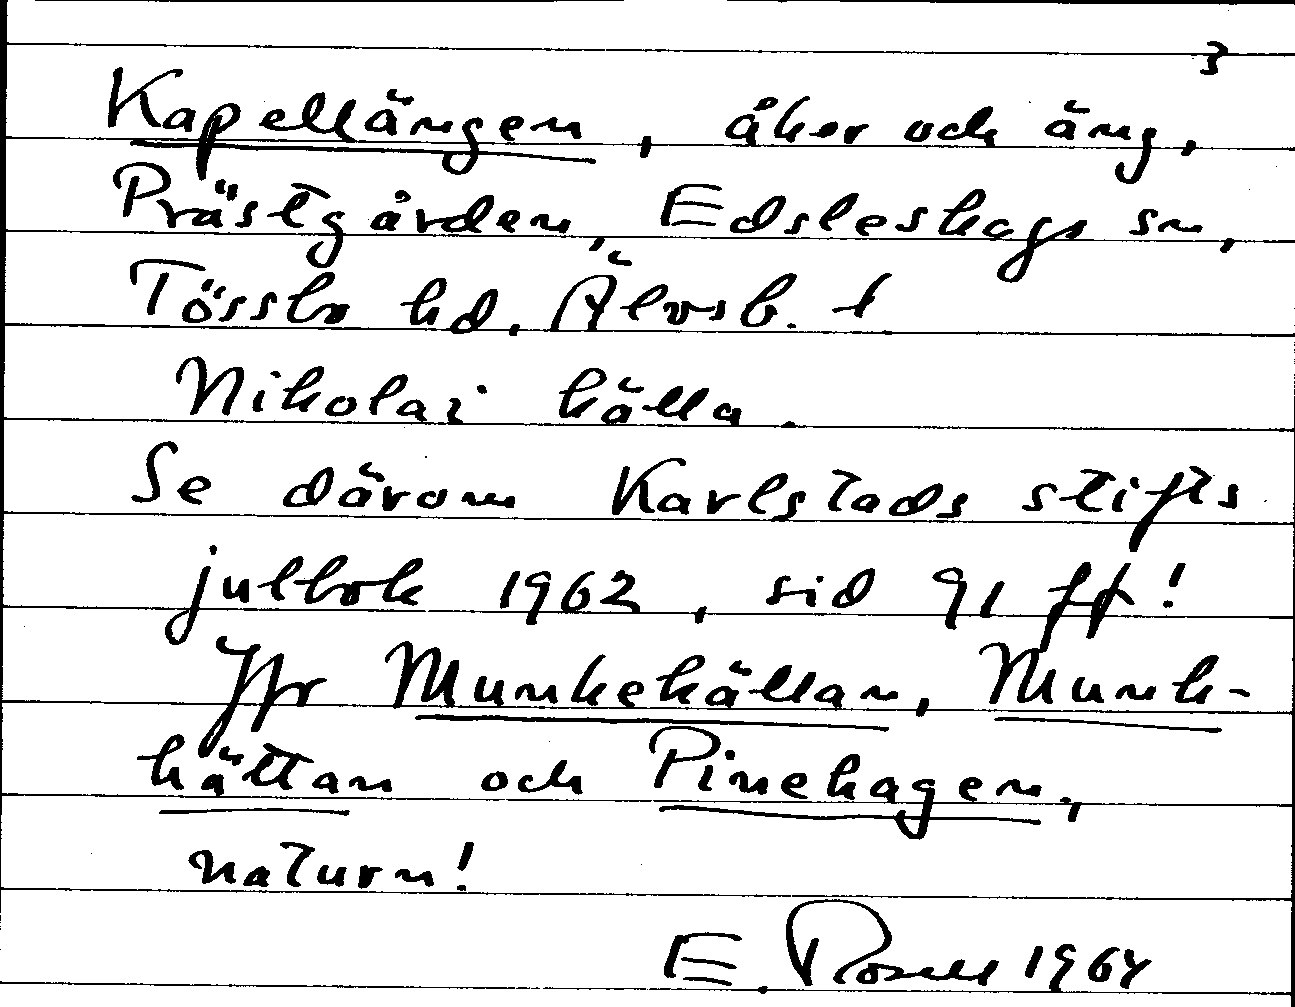 3
Kapellängen, åker och äng,
Prästgården, Edsleskogs sn,
Tössbo hd. Älvsb. l
Nikolai källa.
Se därom Karlstads stifts
julbok 1962, sid 91 ff!
Jfr Munkekällan, Munk-
hättan och Pinehagen,
naturn!
E. Rosell 1964